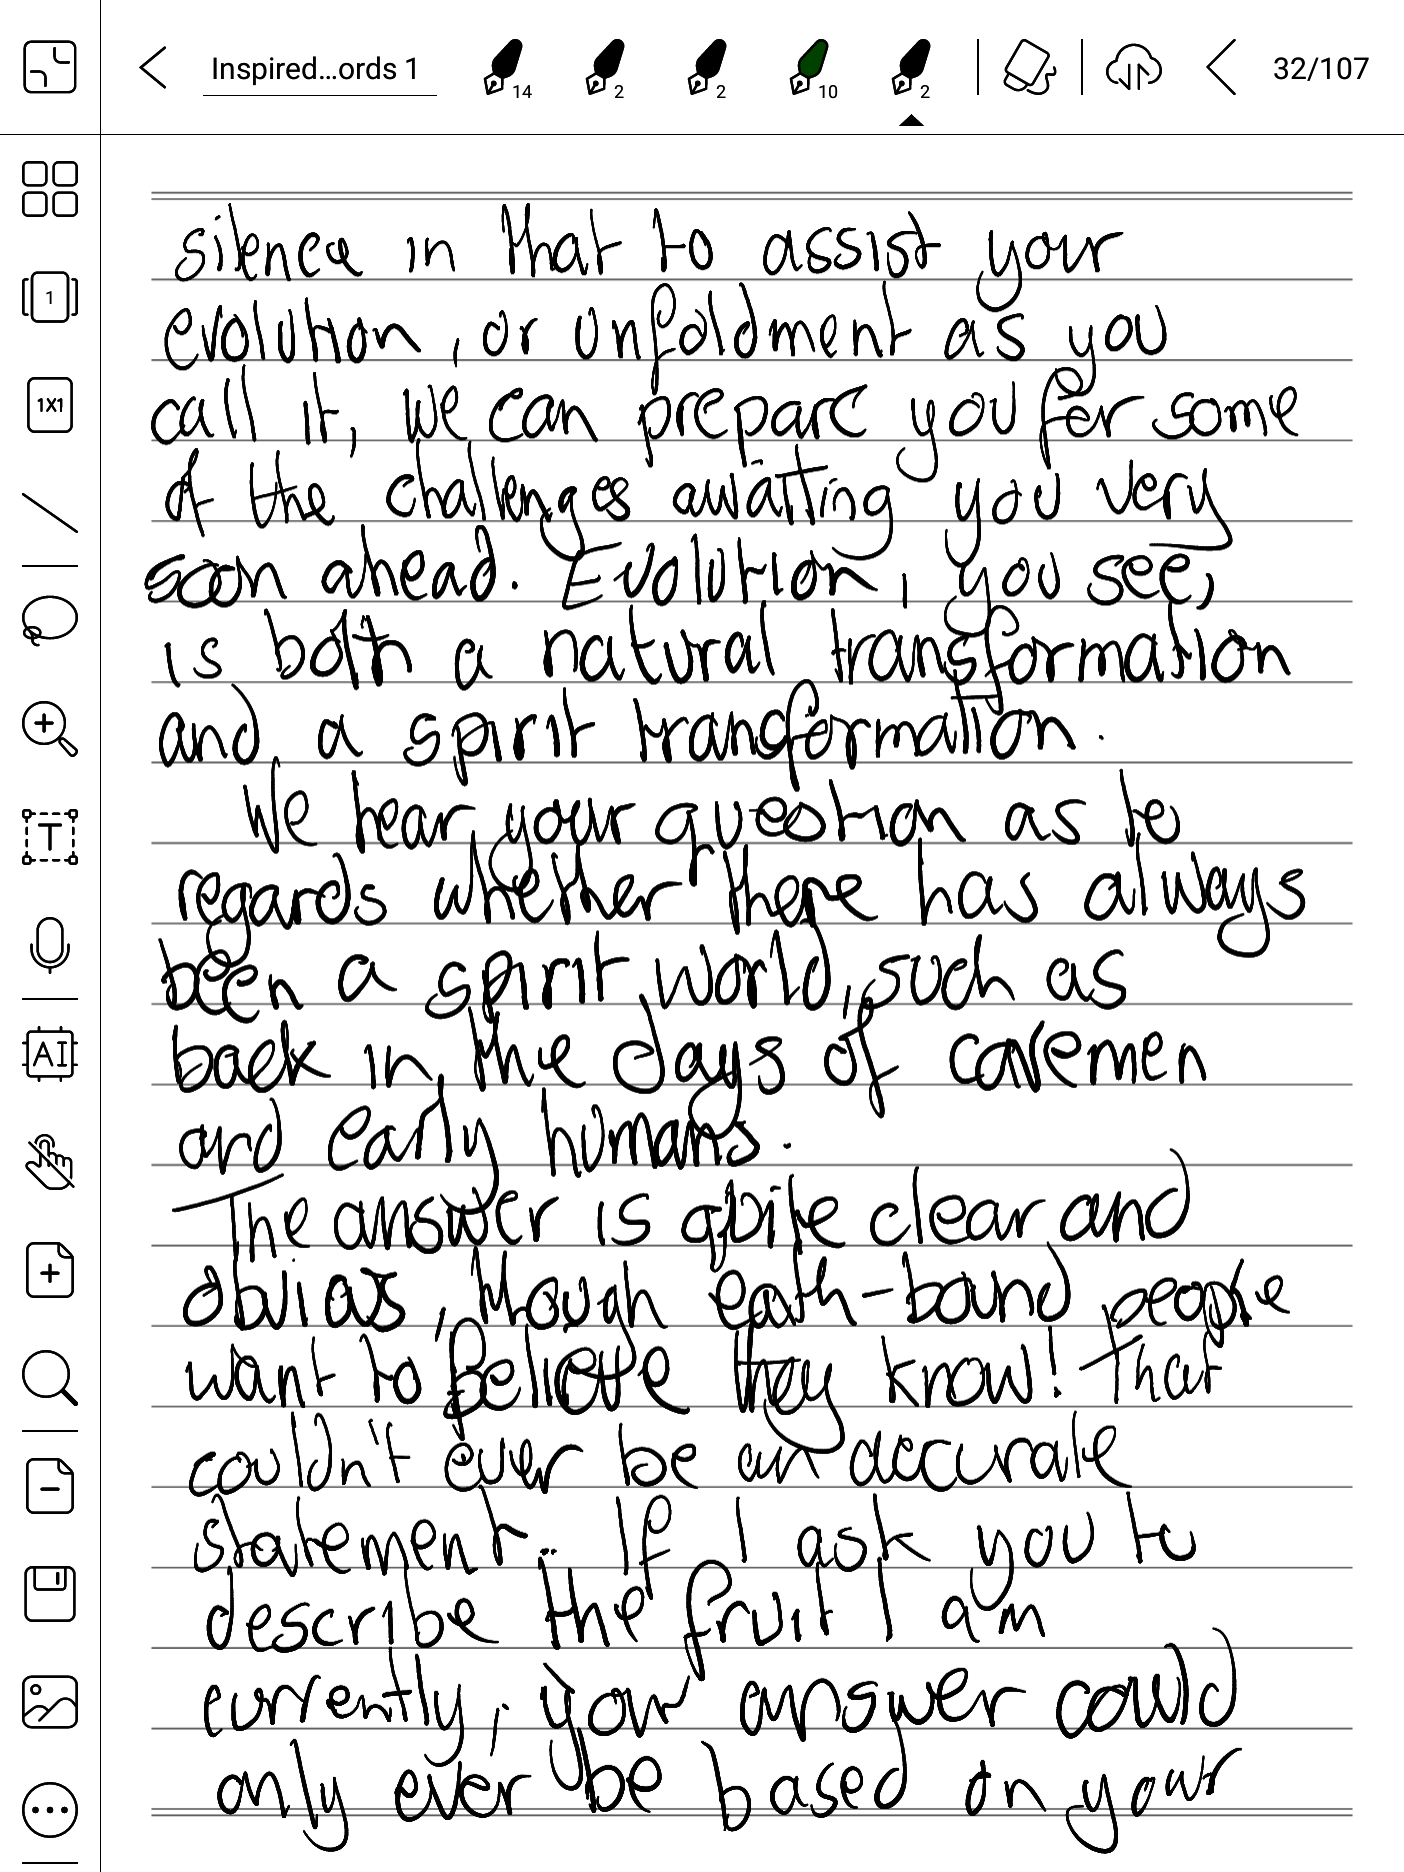 Inspired...ords 1
14
2
2
10
2
32/107
1
1X1
T
AI
silence in that to assist your
evolution, or unfoldment as you
call it, we can prepare you for some
of the challenges awaiting you very
soon ahead. Evolution, you see,
is both a natural transformation
and a spirit transformation.
We hear your question as to
regards whether there has always
been a spirit world, such as
back in the days of cavemen
and early humans.
The answer is quite clear and
obvious, though earth-bound people
want to believe they know! That
couldn't ever be an accurate
statement.. If I ask you to
describe the fruit I am
currently, your answer could
only ever be based on your